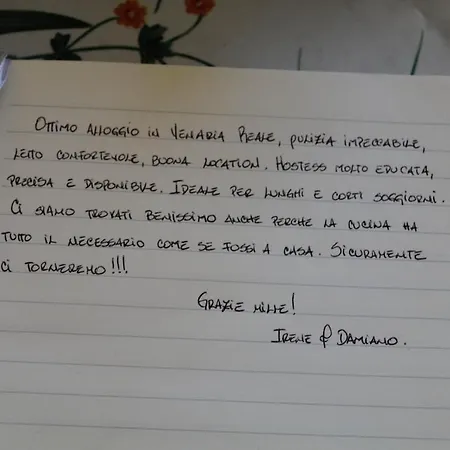 Ottimo alloggio in Venaria Reale, pulizia impeccabile,
letto confortevole, buona location. Hostess molto educata,
precisa e disponibile. Ideale per lunghi e corti soggiorni.
Ci siamo trovati benissimo anche perche la cucina ha
tutto il necessario come se fossi a casa. Sicuramente
ci torneremo!!!
Grazie mille!
Irene & Damiano.